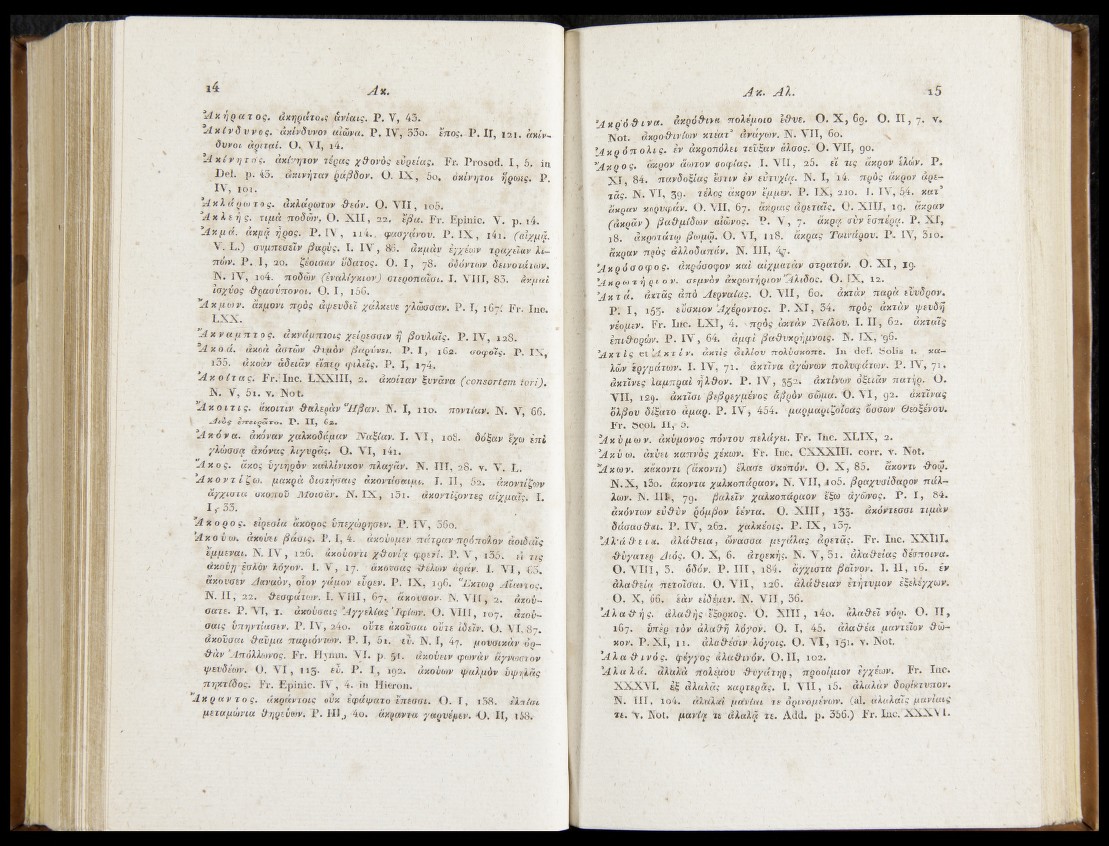 14 Ἀκ.
Ἀκήρατος. ἀκηράτοις ἀνίαις. P. V, 43.
Ἀκίνδυνος. ἀκίνδυνον αἰῶνα. P. IV, 33o. ἔπος. P. II, 121. ἀκίν-
δυνοι ἀρεταί. O. VI, 14.
Ἀκίνητος. ἀκίνητον τέρας χθονὸς εὐρείας. Fr. Prosod. I, 5. in
Del. p. 43. ἀκινήταν ῥάβδον. O. IX, 5o. ἀκίνητοι ἥρωης. P.
IV, 101.
Ἀκλάρωτος. ἀκλάρωτον θεόν. O. VII, 1o5.
Ἀκλεής. τιμὰ ποδῶν. O. XII, 22. ἔβα. Fr. Epinic. V. p. 14.
Ἀκμά. ἀκμᾷ ἦρος. P. IV, 114. φασγάνου. P. IX, 141. (αἰχμᾷ.
V. L.) συμπεσεῖν βαρύς. I. IV, 86. ἀκμὰν ἐγχέων τραχεῖαν λι-
πών. P. I, 20. ζέοισαν ὕδατος. O. I, 78. ὀδόντων δεινοτάτων.
N. IV, 1o4. ποδῶν (ἐναλίγκιον) στεροπαῖσι. I. VIII, 83. ἀκμαί
ἰσχύος θρασύπονοι. O. I, 156.
Ἄκμων. ἄκμονι πρὸς ἀψευδεῖ χάλκευε γλῶσσαν. P. I, 167. Fr. Inc.
LXX.
Ἄκναμπτος. ἀκνάμπτοις χείρεσσιν ἢ βουλαῖς. P. IV, 128.
Ἀκοά. ἀκοὰ ἀστῶν θυμὸν βαρύνει. P. I, 162. σοφοῖς. P. IX,
135. ἀκοὰν ἁδεῖαν εἴπερ φιλεῖς. P. I, 174.
Ἀκοίτας. Fr. Inc. LXXIII, 2. ἀκοίταν ξυνάνα (consortem tori).
N. V, 51. v. Not.
Ἄκοιτις. ἄκοιτιν θαλερὰν Ἥβαν. N. I, 110. ποντίαν. N. V, 66.
Διὸς ἐπειρᾶτο. P. II, 62.
Ἀκόνα. ἀκόναν χαλκοδάμαν Ναξίαν. I. VI, 108. δόξαν ἔχω ἐπὶ
γλώσσᾳ ἀκόνας λιγυρᾶς. O. VI, 141.
Ἄκος. ἄκος ὑγιηρὸν καλλίνικον πλαγᾶν. N. III, 28. v. V. L.
Ἀκοντίζω. μακρὰ δισκήσαις ἀκοντίσαιμι. I. II, 52. ἀκοντίζων
ἄγχιστα σκοποῦ Μοισᾶν. N. IX, 131. ἀκοντίζοντες αἰχμαῖς. I.
I, 33.
Ἄκορος. εἰρεσία ἄκορος ὑπεχώρησεν. P. IV, 36o.
Ἀκούω. ἀκούει βάσις. P. I, 4. ἀκούομεν πάτραν πρόπολον ἀοιδαῖς
ἔμμεναι. N. IV, 126. ἀκούοντι χθονίᾳ φρενί. P. V, 135. εἴ τις
ἀκούῃ ἐσλὸν λόγον. I. V, 17. ἀκούσας θέλων ἀρὰν. I. VI, 63.
ἄκουσεν Δαναόν, οἷον γάμον εὗρεν. P. IX, 196. Ἕκτωρ Αἴαντος.
N. II, 22. θεσφάτων. I. VIII, 67. ἄκουσον. N. VII, 2. ἀκού-
σατε. P. VI, 1. ἀκούσαις Ἀγγελίας Ἰφίων. O. VIII, 107. ἀκού-
σαις ὑπηντίασεν. P. IV, 240. οὔτε ἀκοῦσαι οὔτε ἰδεῖν. O. VI, 87.
ἀκοῦσαι θαῦμα παριόντων. P. I, 51. εὖ. N. I, 47. μουσικὰν ὀρ-
θὰν Ἀπόλλωνος. Fr. Hymn. VI. p. 51. ἀκούειν φωνὰν ἄγνωστον
ψευδέων. O. VI, 115. εὖ. P. I, 192. ἀκούων ψαλμὸν ὑψηλᾶς
πηκτίδος. Fr. Epinic. IV, 4. in Hieron.
Ἄκραντος. ἀκράντοις οὐκ ἐφάψατο ἔπεσσι. O. I, 138. ἐλπίσι
μεταμώνια θηρεύων. P. III, 40. ἄκραντα γαρυέμεν. O. II, 158.
Ἀκ. Ἀλ. 15
Ἀκρόθινα. ἀκρόθινα πολέμοιο ἔθυε. O. X, 69. O. II, 7. v.
Not. ἀκροθινίων κτέατ' ἀνάγων. N. VII, 60.
Ἀκρόπολις. ἐν ἀκροπόλει τεῦξαν ἄλσος. O. VII, 90.
Ἄκρος. ἄκρον ἄωτον σοφίας. I. VII, 25. εἴ τις ἄκρον ἑλών. P.
XI, 84. πανδοξίας ἔστιν ἐν εὐτυχίᾳ. N. I, 14. πρὸς ἄκρον ἀρε-
τᾶς. N. VI, 39. τέλος ἄκρον ἔμμεν. P. IX, 210. I. IV, 54. κατ'
ἄκραν κορυφάν. O. VII, 67. ἄκριας ἀρεταῖς. O. XIII, 19. ἄκραν
(ἀκρᾶν) βαθμίδων αἰῶνος. P. V, 7. ἄκρᾳ σὺν ἑσπέρᾳ. P. XI,
18. ἀκροτάτῳ βωμῷ. O. VI, 118. ἄκρας Ταινάρου. P. IV, 310.
ἄκραν πρὸς ἀλλοδαπάν. N. III, 47.
Ἀκρόσοφος. ἀκρόσοφον καὶ αἰχματὰν στρατόν. O. XI, 19.
Ἀκρωτήριον. σεμνὸν ἀκρωτήριον Ἄλιδος. O. IX, 12.
Ἀκτά. ἀκτὰς ἀπὸ Λερναίας. O. VII, 60. ἀκτὰν παρὰ εὔυδρον.
P. I, 153. εὔσκιον Ἀχέροντος. P. XI, 34. πρὸς ἀκτὰν ψευδῆ
νέομεν. Fr. Inc. LXI, 4. πρὸς ἀκτὰν Νείλου. I. II, 62. ἀκταῖς
ἐπιθορών. P. IV, 64. ἀμφὶ βαθυκρήμνοις. N. IX, 96.
Ἀκτὶς et Ἀκτίν. ἀκτὶς ἀελίου πολύσκοπε. In def. Solis 1. κα-
λῶν ἐργμάτων. I. IV, 71. ἀκτῖνα ἀγώνων πολυφάτων. P. IV, 71.
ἀκτῖνες λαμπραὶ ἦλθον. P. IV, 352. ἀκτίνων ὀξειᾶν πατήρ. O.
VII, 129. ἀκτῖσι βεβρεγμένος ἁβρὸν σῶμα. O. VI, 92. ἀκτῖνας
ὄλβου δίξατο ἇμαρ. P. IV, 454. μαρμαριζοίσας ὄσσων Θεοξένου.
Fr. Scol. II, 3.
Ἀκύμων. ἀκύμονος πόντου πελάγει. Fr. Inc. XLIX, 2.
Ἀκύω. ἀκύει καπνὸς χέκων. Fr. Inc. CXXXIII. corr. v. Not.
Ἄκων. κἄκοντι (ἄκοντι) ἔλασε σκοπόν. O. X, 85. ἄκοντι θοῷ.
N. X, 130. ἄκοντα χαλκοπάραον. N. VII, 105. βραχυσίδαρον πάλ-
λων. N. III, 79. βαλεῖν χαλκοπάραον ἔξω ἀγῶνος. P. I, 84.
ἀκόντων εὐθὺν ῥόμβον ἱέντα. O. XIII, 133. ἀκόντεσσι τιμὰν
δάσασθαι. P. IV, 262. χαλκέοις. P. IX, 137.
Ἀλάθεια. ἀλάθεια, ὤνασσα μεγάλας ἀρετᾶς. Fr. Inc. XXIII.
θυγατερ Διός. O. X, 6. ἀτρεκής. N. V, 31. ἀλαθείας δέσποινα.
O. VIII, 3. ὁδόν. P. III, 184. ἄγχιστα βαῖνον. I. II, 16. ἐν
ἀλαθείᾳ πετοῖσαι. O. VII, 126. ἀλάθειαν ἐτήτυμον ἐξελέγχων.
O. X, 66. ἐὰν εἰδέμεν. N. VII, 36.
Ἀλαθής. ἀλαθὴς ἔξορκος. O. XIII, 140. ἀλαθεῖ νόῳ. O. II,
167. ὑπὲρ τὸν ἀλαθῆ λόγον. O. I, 45. ἀλαθέα μαντεῖον θῶ-
κον. P. XI, 11. ἀλαθέσιν λόγοις. O. VI, 151. v. Not.
Ἀλαθινός. φέγγος ἀλαθινόν. O. II, 102.
Ἀλαλά. ἀλαλὰ πολέμου θυγάτηρ, προοίμιον ἐγχέων. Fr. Inc.
XXXVI. ἐξ ἀλαλᾶς καρτερᾶς. I. VII, 15. ἀλαλὰν δορίκτυπον.
N. III, 104. ἀλαλαὶ μανίαι τε ὀρινομένων. (al. ἀλαλαῖς μανίαις
τε. v. Not. μανίᾳ τε ἀλαλᾷ τε. Add. p. 356.) Fr. Inc. XXXVI.